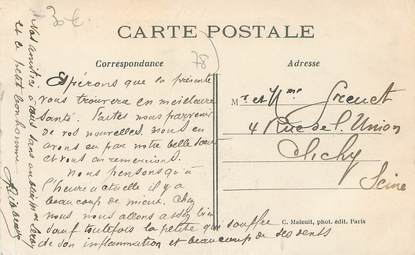 30 €
78
CARTE POSTALE
Correspondance
Adresse
Espérons que la présente
vous trouvera en meilleure
santé. Faites nous parvenir
de vos nouvelles. Nous en
avons eu par notre belle sœur
et vous en remercions.
Nous pensons qu'à
l'heure actuelle il y a
beaucoup de mieux. Chez
nous nous allons assez bien
sauf toutefois la petite qui souffre
de son inflammation et beaucoup de ses dents
Nos amitiés à tous sans oublier
et le petit bonhomme
Mr et Mme Greuet
4 Rue de l'Union
Clichy
Seine
C. Maleuit, phot. édit. Paris